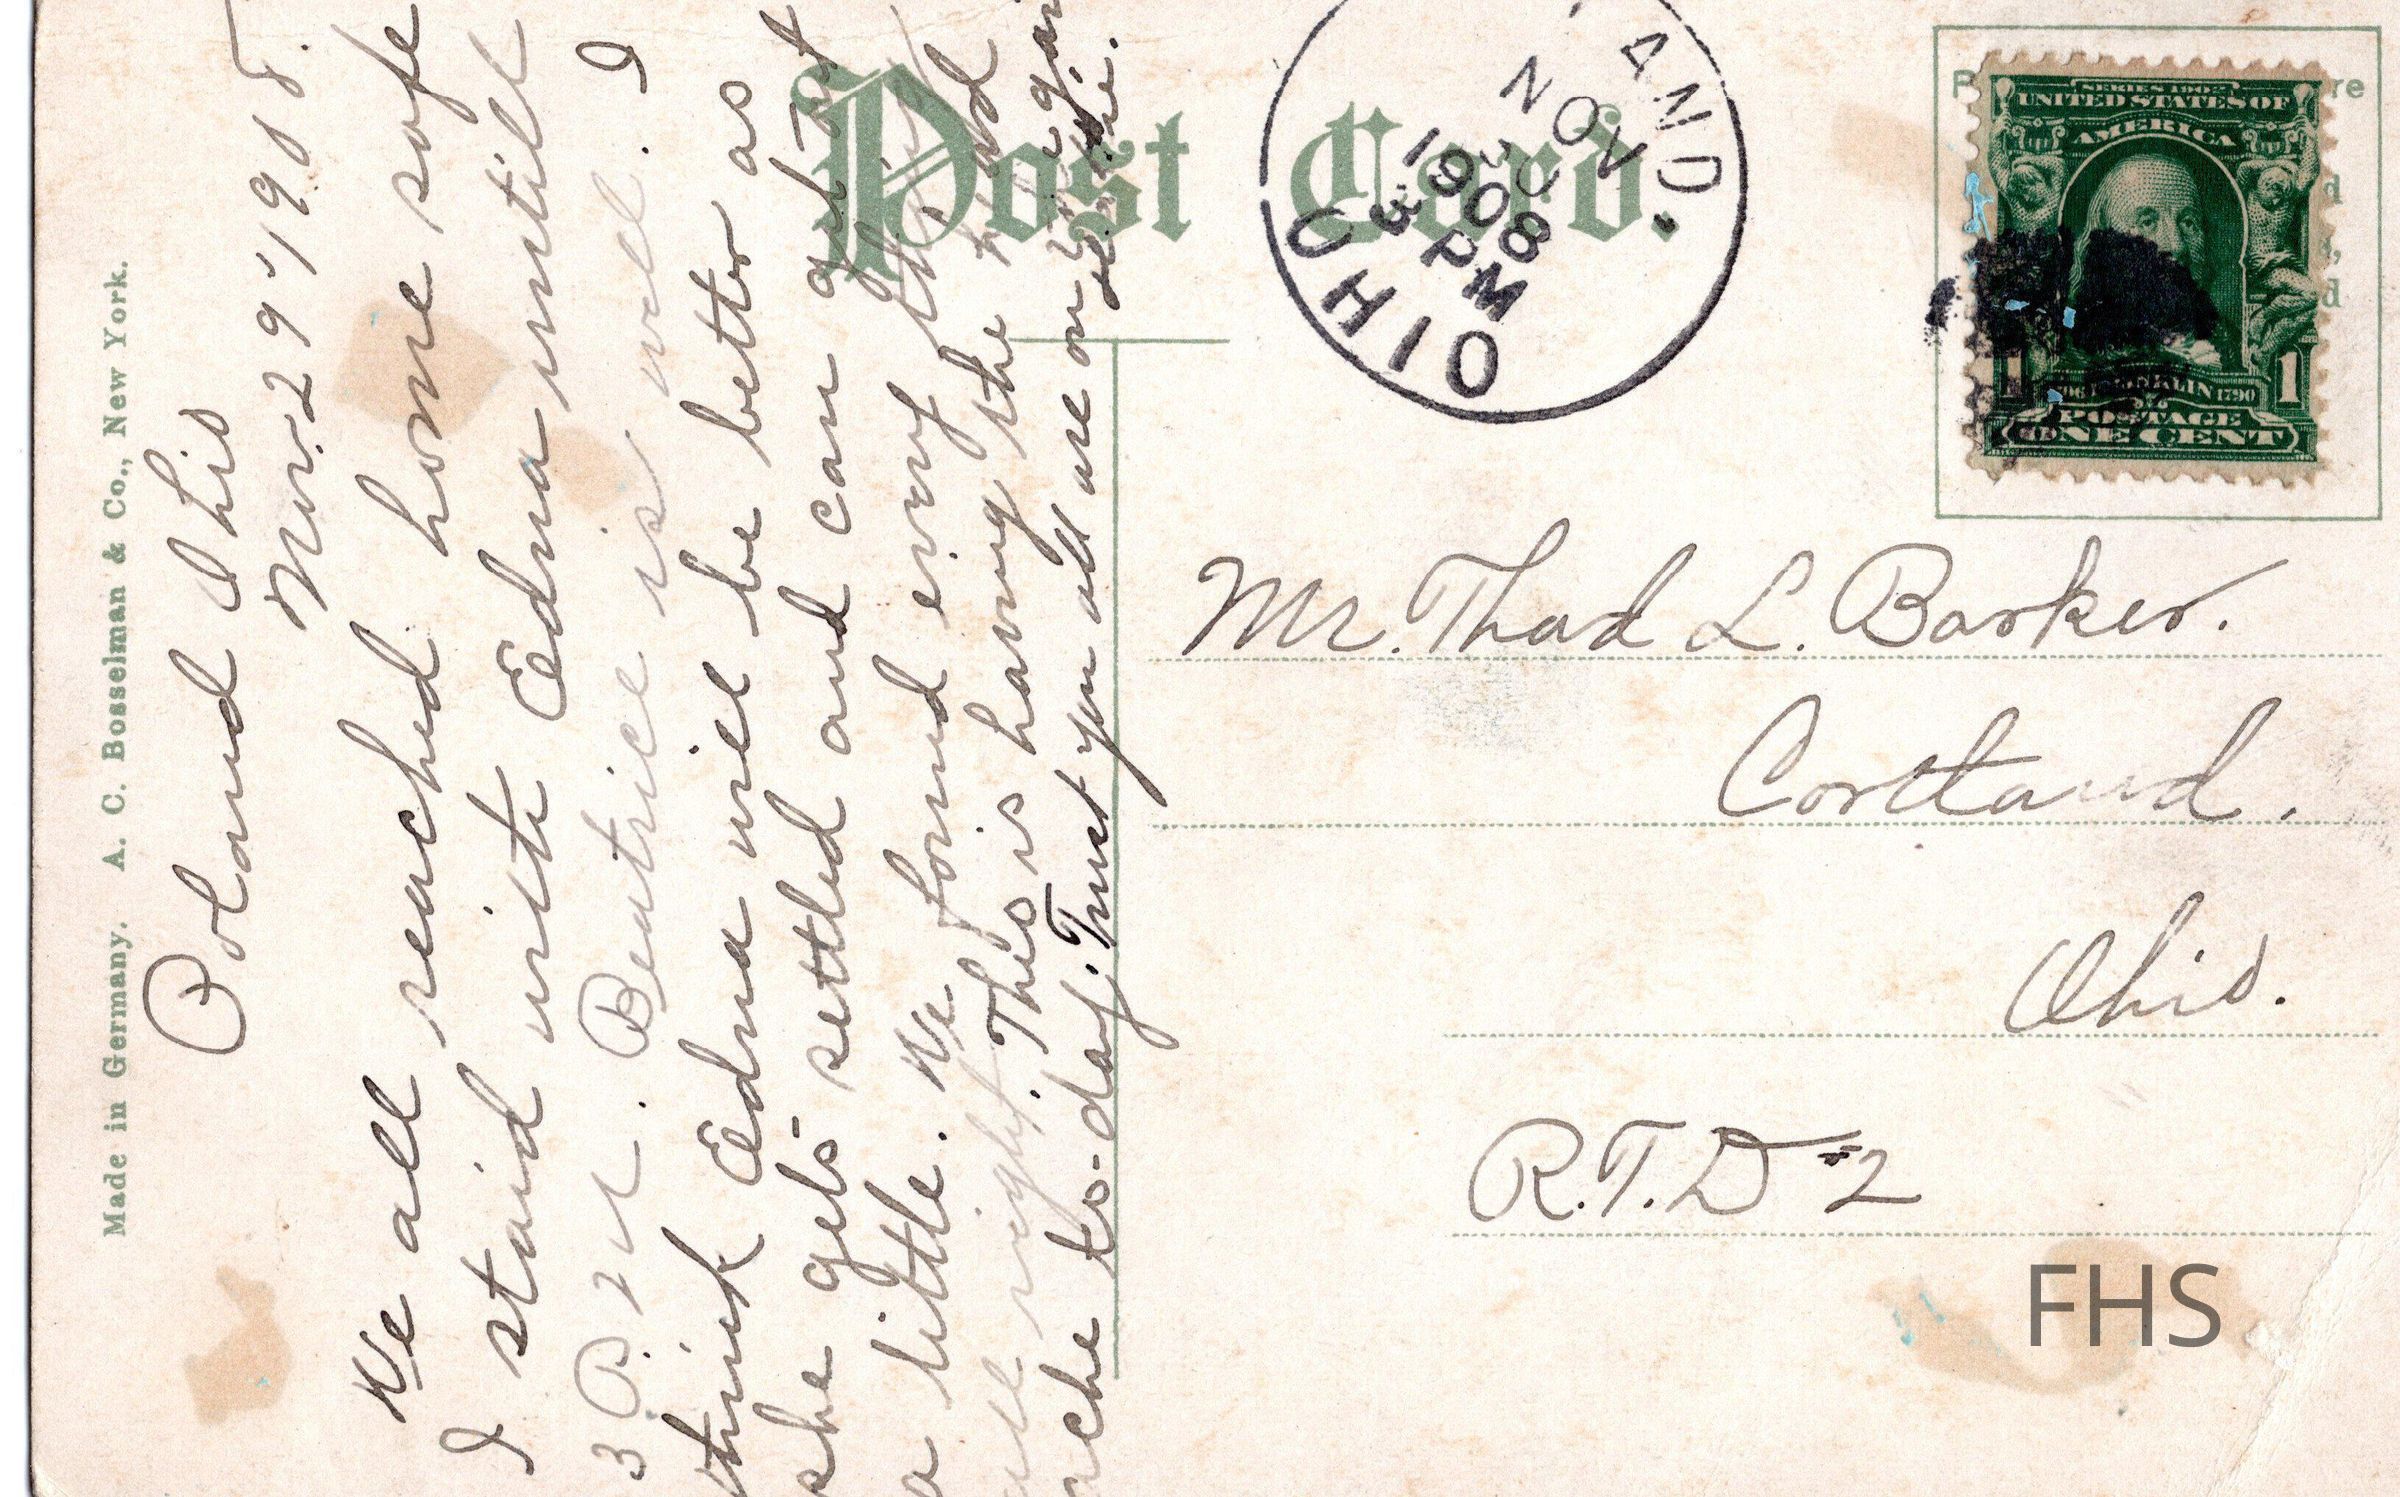 Made in Germany. A. C. Bosselman & Co., New York.
Poland Ohio
Nov. 29 - 1908.
We all reached home safe
I staid with Edna until
3 P.M. Beatrice is well. I
think Edna will be better as
she gets settled and can get out
a little. We found every thing
all right. This is having the head
ache to-day. Trust you all are on
Post Card.
AND.
NOV
30
1908
3 PM
OHIO
SERIES 1902
UNITED STATES OF
AMERICA
1 1
FRANKLIN 1790
POSTAGE
ONE CENT
Mr. Thad L. Barker.
Cortland.
Ohio.
R.F.D #2
FHS